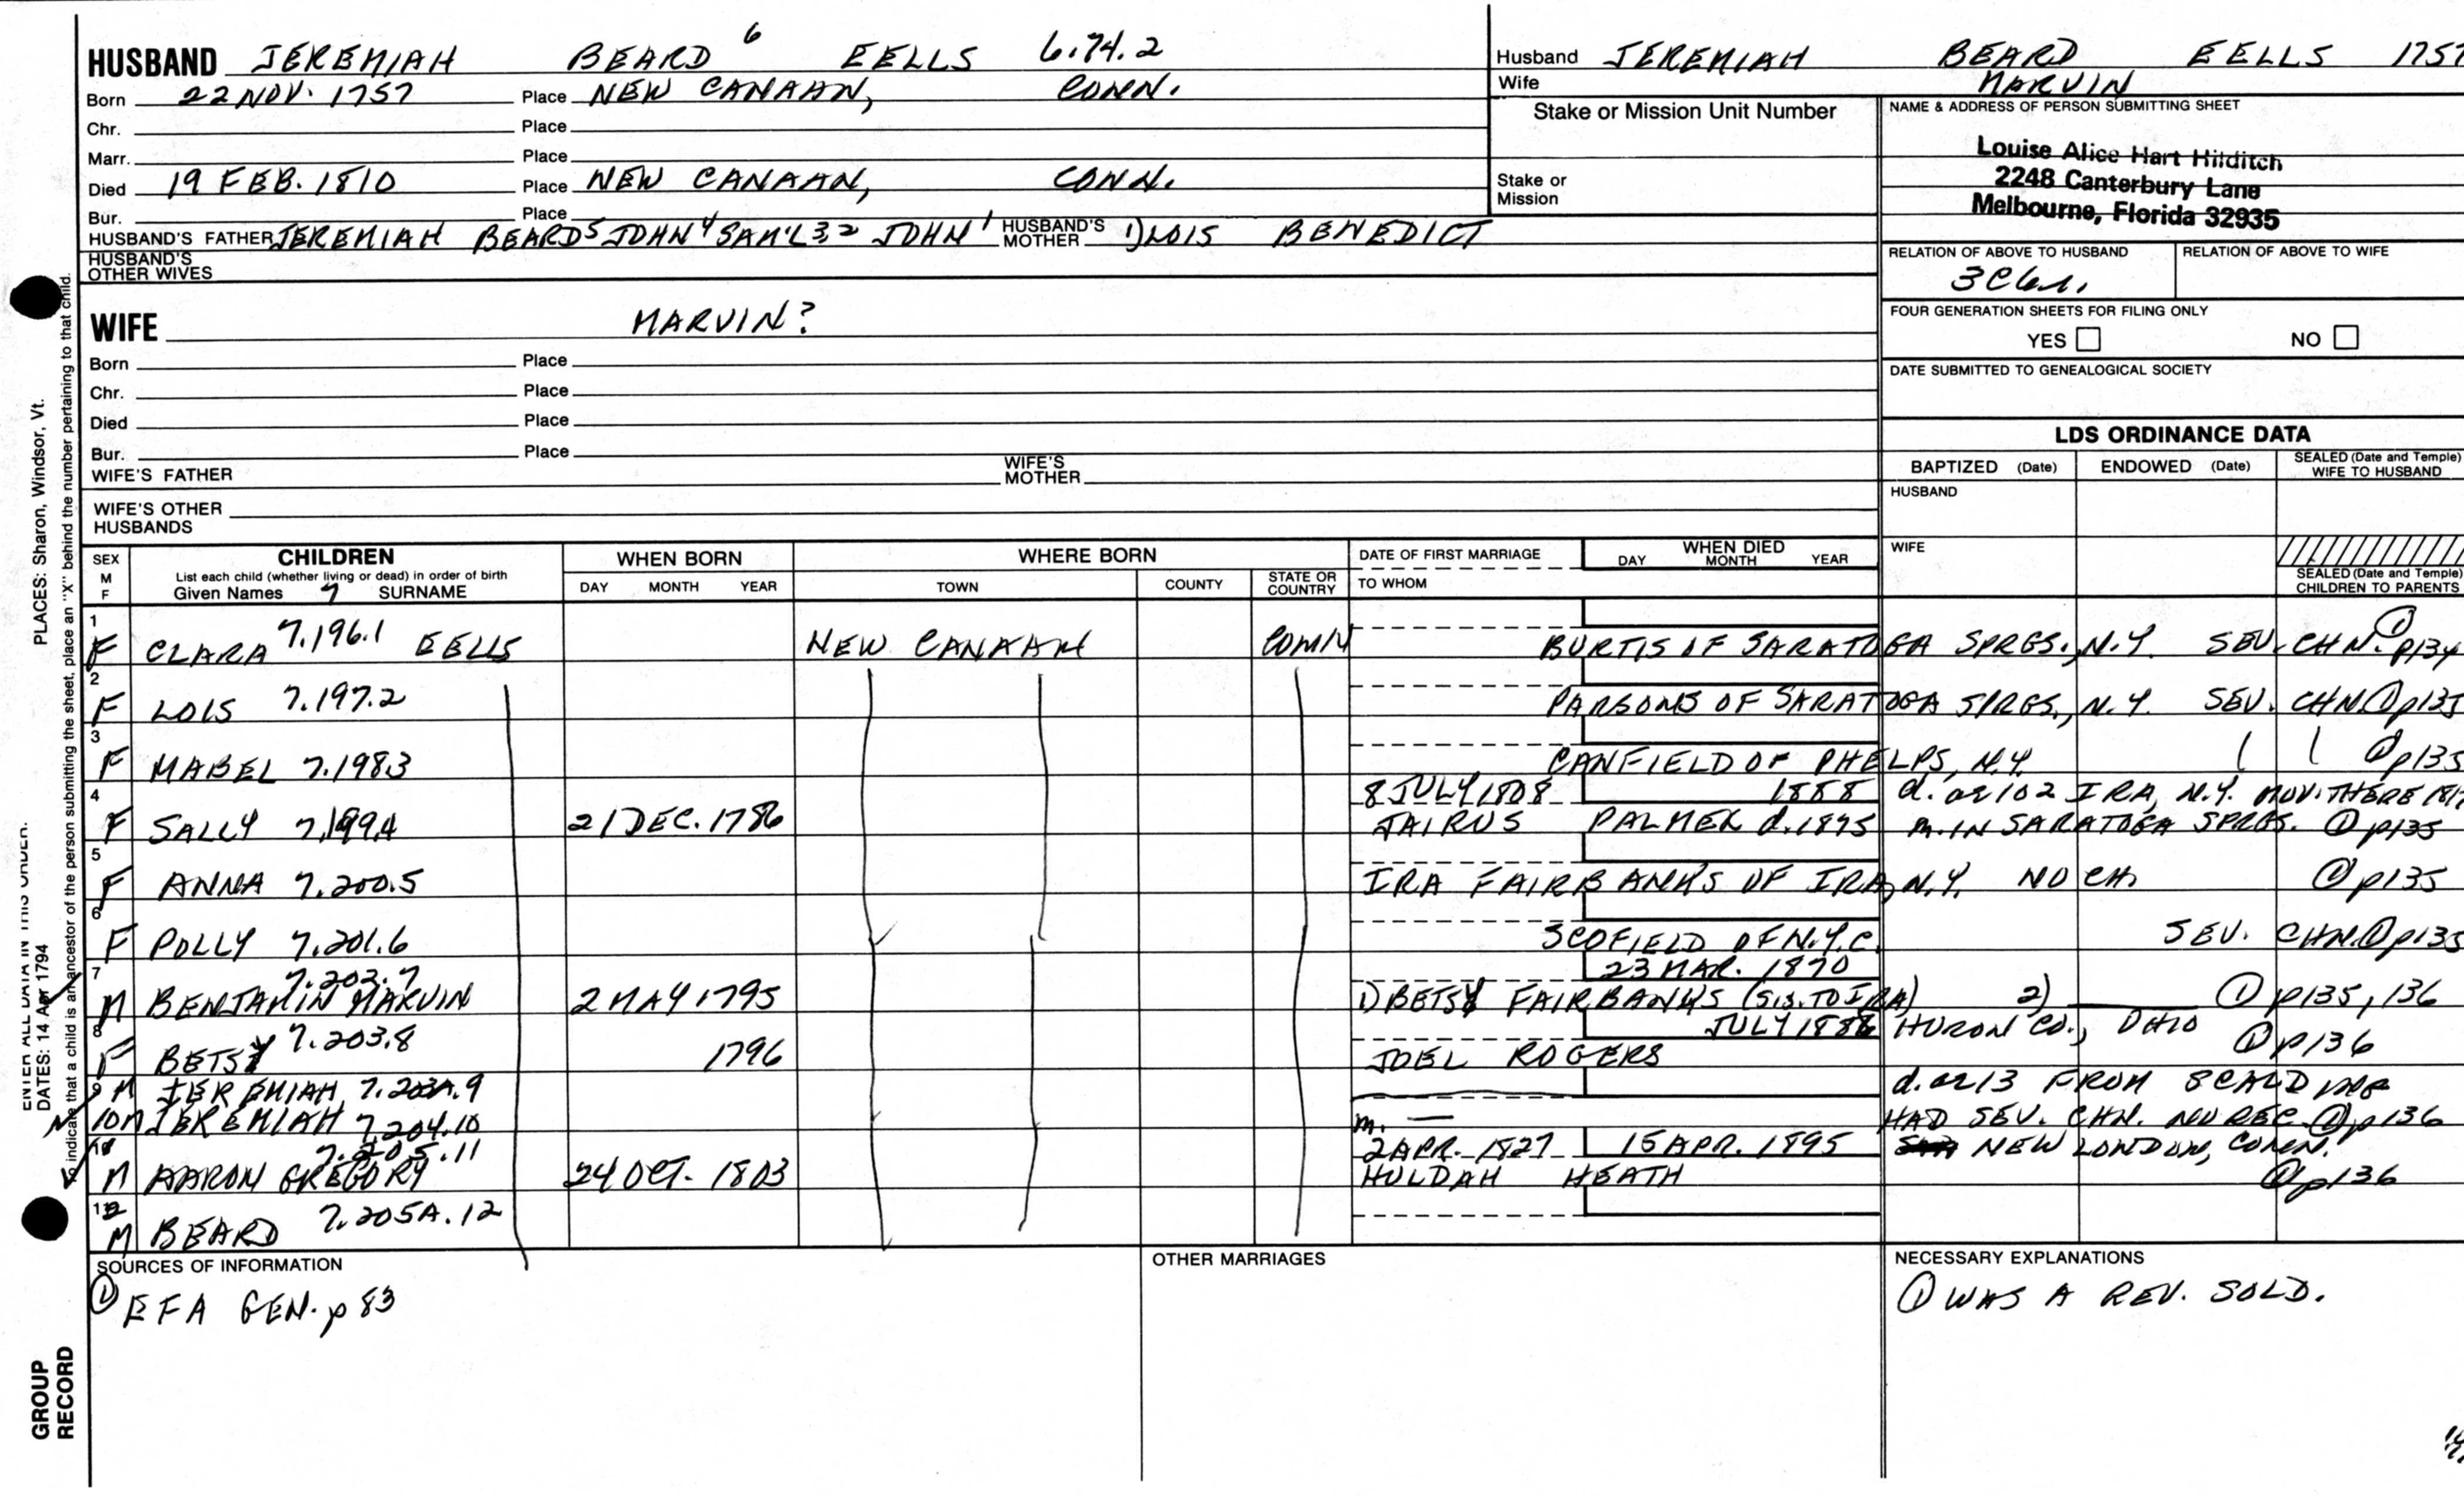 HUSBAND JEREMIAH BEARD 6 EELLS 6.74.2
Born 22 NOV. 1757 Place NEW CANAAN, CONN.
Chr. Place
Marr. Place
Died 19 FEB. 1810 Place NEW CANAAN, CONN.
Bur. Place
HUSBAND'S FATHER JEREMIAH BEARD5 JOHN4 SAM'L3,2 JOHN1 HUSBAND'S MOTHER 1) LOIS BENEDICT
HUSBAND'S OTHER WIVES
Husband JEREMIAH BEARD EELLS 1757
Wife MARVIN
Stake or Mission Unit Number
Stake or Mission
NAME & ADDRESS OF PERSON SUBMITTING SHEET
Louise Alice Hart Hilditch
2248 Canterbury Lane
Melbourne, Florida 32935
RELATION OF ABOVE TO HUSBAND RELATION OF ABOVE TO WIFE
3C6r.
FOUR GENERATION SHEETS FOR FILING ONLY
YES NO
DATE SUBMITTED TO GENEALOGICAL SOCIETY
WIFE MARVIN?
Born Place
Chr. Place
Died Place
Bur. Place
WIFE'S FATHER WIFE'S MOTHER
WIFE'S OTHER HUSBANDS
LDS ORDINANCE DATA
BAPTIZED (Date) ENDOWED (Date) SEALED (Date and Temple) WIFE TO HUSBAND
HUSBAND
WIFE
SEALED (Date and Temple) CHILDREN TO PARENTS
SEX M F
CHILDREN
List each child (whether living or dead) in order of birth
Given Names 7 SURNAME
WHEN BORN
DAY MONTH YEAR
WHERE BORN
TOWN COUNTY STATE OR COUNTRY
DATE OF FIRST MARRIAGE
TO WHOM
WHEN DIED
DAY MONTH YEAR
1 F CLARA 7.196.1 EELLS NEW CANAAN CONN BURTIS OF SARATOGA SPRGS., N.Y. SEV. CHN. ① p134
2 F LOIS 7.197.2 PARSONS OF SARATOGA SPRGS., N.Y. SEV. CHN. ① p135
3 F MABEL 7.198.3 CANFIELD OF PHELPS, N.Y. ① p135
4 8 JULY 1808 1888 d. ae 102 IRA, N.Y. MOV. THERE
F SALLY 7.199.4 21 DEC. 1786 JAIRUS PALMER d. 1875 m. IN SARATOGA SPRGS. ① p135
5 F ANNA 7.200.5 IRA FAIRBANKS OF IRA, N.Y. NO CH. ① p135
6 F POLLY 7.201.6 SCOFIELD OF N.Y.C. SEV. CHN. ① p135
7 7.202.7 23 MAR. 1870
M BENJAMIN MARVIN 2 MAY 1795 1) BETSY FAIRBANKS (SIS. TO IRA) 2) ① p135, 136
8 7.203.8 JULY 1886 HURON CO., OHIO
F BETSY 1796 JOEL ROGERS ① p136
9 M JEREMIAH 7.203A.9 d. ae 13 FROM SCALDING
10 M JEREMIAH 7.204.10 m. — HAD SEV. CHN. NO REC. ① p136
7.205.11 2 APR. 1827 15 APR. 1895 NEW LONDON, CONN.
M AARON GREGORY 24 OCT. 1803 HULDAH HEATH ① p136
12 M BEARD 7.205A.12
SOURCES OF INFORMATION
① EFA GEN. p 83
OTHER MARRIAGES
NECESSARY EXPLANATIONS
① WAS A REV. SOLD.
ENTER ALL DATA IN THIS ORDER.
DATES: 14 Apr 1794 PLACES: Sharon, Windsor, Vt.
To indicate that a child is an ancestor of the person submitting the sheet, place an "X" behind the number pertaining to that child.
GROUP RECORD